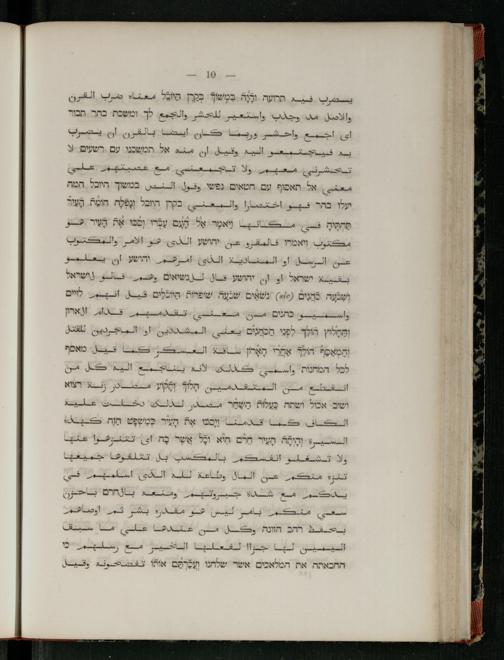 — 10 —
يستضرب فيه תרועה והיה במשוך בקרן היובל معناه ضرب القرن
والاصل مد وجذب واستعير للحشر والجمع לך ומשכת בהר תבור
اى اجمع واحشر وربما كان ايضا بالقرن ان يضرب
به فيجتمعو اليه وقيل ان منه אל תמשכני עם רשעים לא
تحشرنى معهم ولا تجمعنى مع عصبتهم على
معنى אל תאסוף עם חטאים נפשי وقول النص במשוך היובל המה
יעלו בהר فهو اختصار والمعنى בקרן היובל ונפלה חומת העיר
תחתיה فى مكانها ויאמר אל העם עברו וסבו את העיר هو
مكتوب ויאמרו فالمقرو عن יהושע الذى هو الامر والمكتوب
عن الرسل او المنادية الذى امرهم יהושע ان يعلمو
بقيية ישראל او ان יהושע قال للנשיאים وهم قالو لישראל
ושבעה כהנים (sic) נשאים שבעה שופרות היובלים قيل انهم לוים
واسميو כהנים من معنى تقدمهم قدام الארון
והחלוץ הולך לפני הכהנים يعنى المشددين او المجردين للقتل
והמאסף הולך אחרי הארון ساقة العسكر كما قيل מאסף
לכל המחנות واسمى كذلك لانه ينجمع اليه كل من
انقطع من المتقدمين הלוך ותקוע مصدر زنة רצוא
ושוב אכול ושתה כעלות השחר مصدر لذلك دخلت عليه
الكاف كما قدمنا ויסבו את העיר כמשפט הזה كهذه
السيرة והיתה העיר חרם היא וכל אשר בה اى تتنزهوا عنها
ولا تشغلو انفسكم بالمكسب بل تتلفوها جميعها
تنزه منكم عن المال وطاعة لله الذى اسلمهم فى
يدكم مع شدة جبروتهم ومنعة بالחרם באחזן
سعى منكم بامر ليس هو مقدرة بشر ثم اوصاهم
بحفظ רחב הזונה وكل من عندها على ما سبقا
اليمين لها جزاا لفعلها الخير مع رسلهم כי
החבאתה את המלאכים אשר שלחנו ועכרתם אותו تفضحونه وقيل